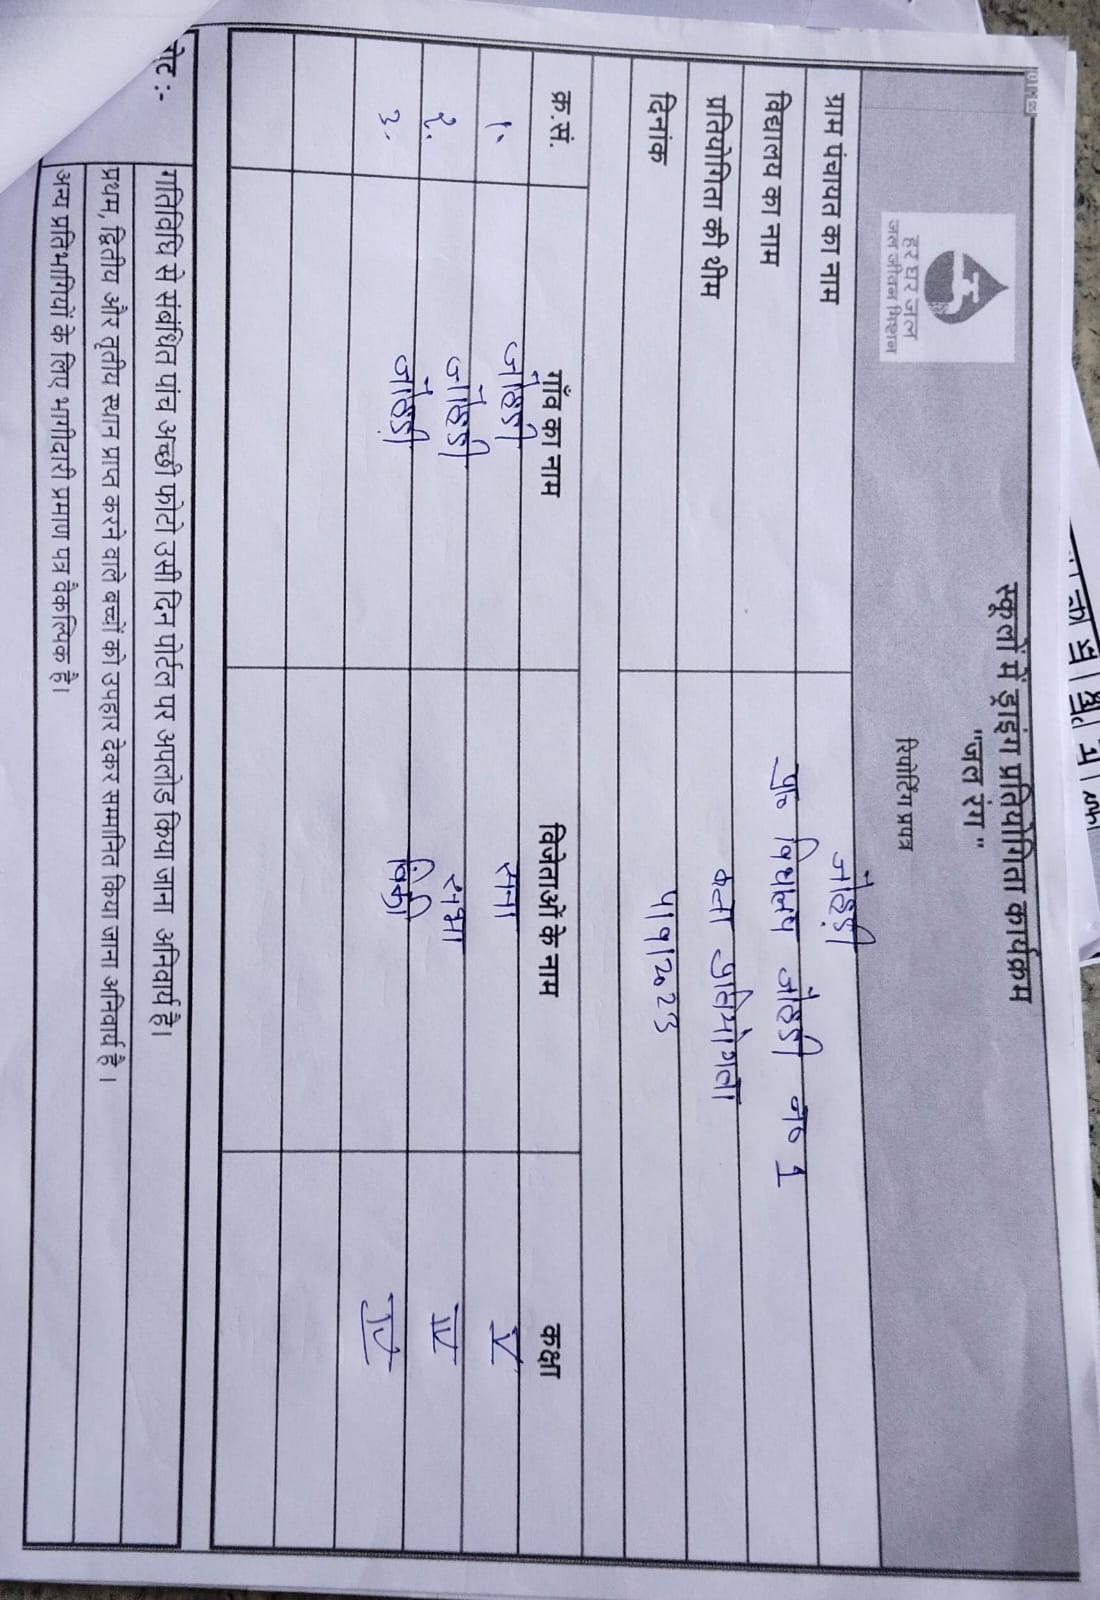 स्कूलों में ड्राइंग प्रतियोगिता कार्यक्रम
"जल रंग"
रिपोर्टिंग प्रपत्र
हर घर जल
जल जीवन मिशन
ग्राम पंचायत का नाम जेहिडी
विद्यालय का नाम प्रा० विद्यालय जेहिडी न० 1
प्रतियोगिता की थीम कला प्रतियोगता
दिनांक
क्र.सं. गाँव का नाम विजेताओं के नाम कक्षा
1. जेहिडी सना V
2. जेहिडी IV
3. जेहिडी IV
नोट :-
गतिविधि से संबंधित पांच अच्छी फोटो उसी दिन पोर्टल पर अपलोड किया जाना अनिवार्य है।
प्रथम, द्वितीय और तृतीय स्थान प्राप्त करने वाले बच्चों को उपहार देकर सम्मानित किया जाना अनिवार्य है।
अन्य प्रतिभागियों के लिए भागीदारी प्रमाण पत्र वैकल्पिक है।